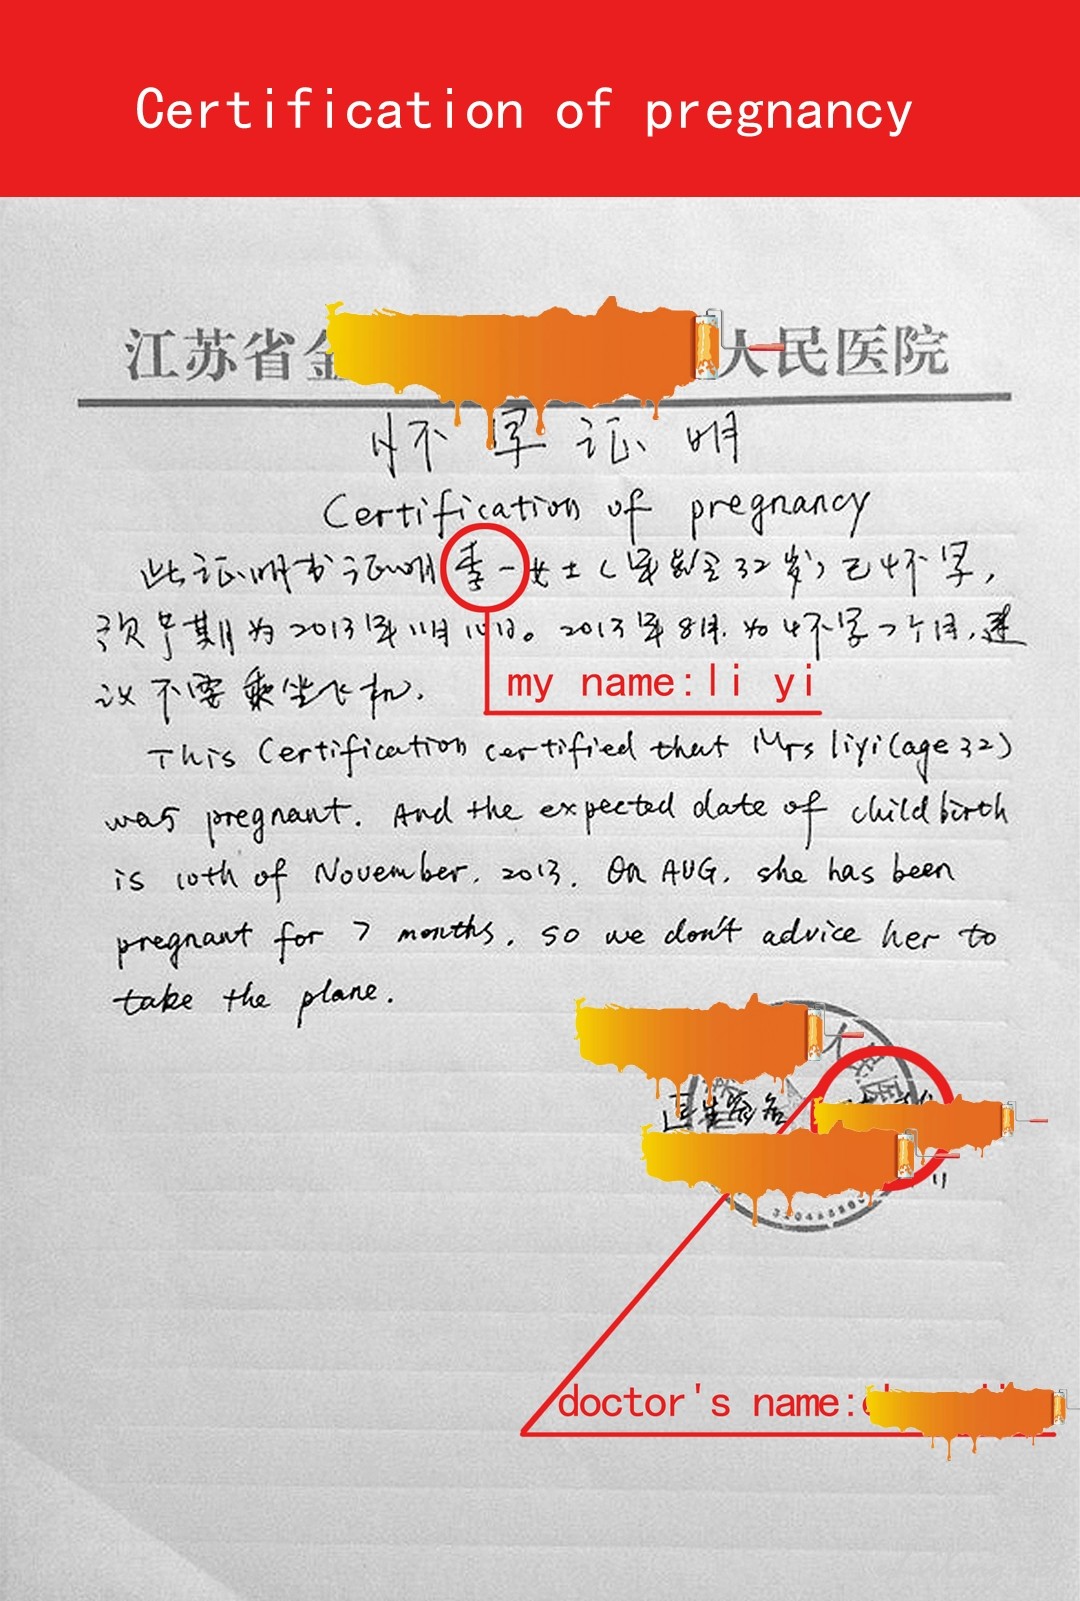 Certification of pregnancy
江苏省金 人民医院
怀孕证明
Certification of pregnancy
此证明书证明李一女士(年龄是32岁)已怀孕,
预产期为2013年11月10日。2013年8月.为怀孕7个月,建
议不要乘坐飞机.
This Certification certified that Mrs liyi(age 32)
was pregnant. And the expected date of childbirth
is 10th of November. 2013. On AUG. she has been
pregnant for 7 months. so we don't advice her to
take the plane.
my name:li yi
人民医
医生签名
doctor's name: